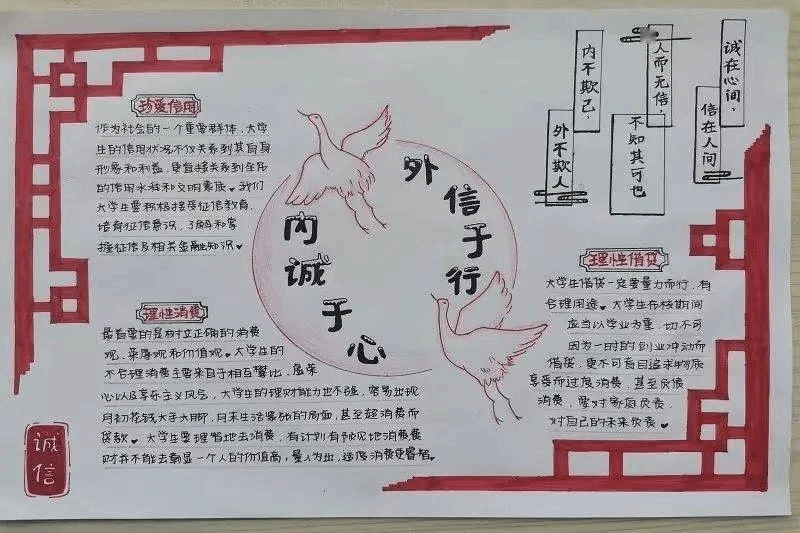 珍爱信用
作为社会的一个重要群体,大学
生的信用状况不仅关系到其自身
形象和利益,更直接关系到全民
的信用水准和文明素质♥我们
大学生要积极接受征信教育,
培育征信意识,了解和掌
握征信及相关金融知识♥
理性消费
最首要的是树立正确的消费
观、荣辱观和价值观♥大学生的
不合理消费主要来自于相互攀比、虚荣
心以及享乐主义风气,大学生的理财能力也不强,容易出现
月初花钱大手大脚,月末生活紧张的局面,甚至超消费而
贷款♥大学生要理智地去消费,有计划有预见地消费
财并不能去彰显一个人的价值高,量入为出,适度消费更睿智♥
诚信
内诚于心
外信于行
诚在心间,
信在人间
人而无信,
不知其可也
内不欺己,
外不欺人
理性借贷
大学生借贷一定要量力而行,有
合理用途♥大学生在校期间
应当以学业为重,切不可
因为一时的创业冲动而
借贷,更不可盲目追求物质
享受而过度消费,甚至负债
消费,要对家庭负责,
对自己的未来负责♥